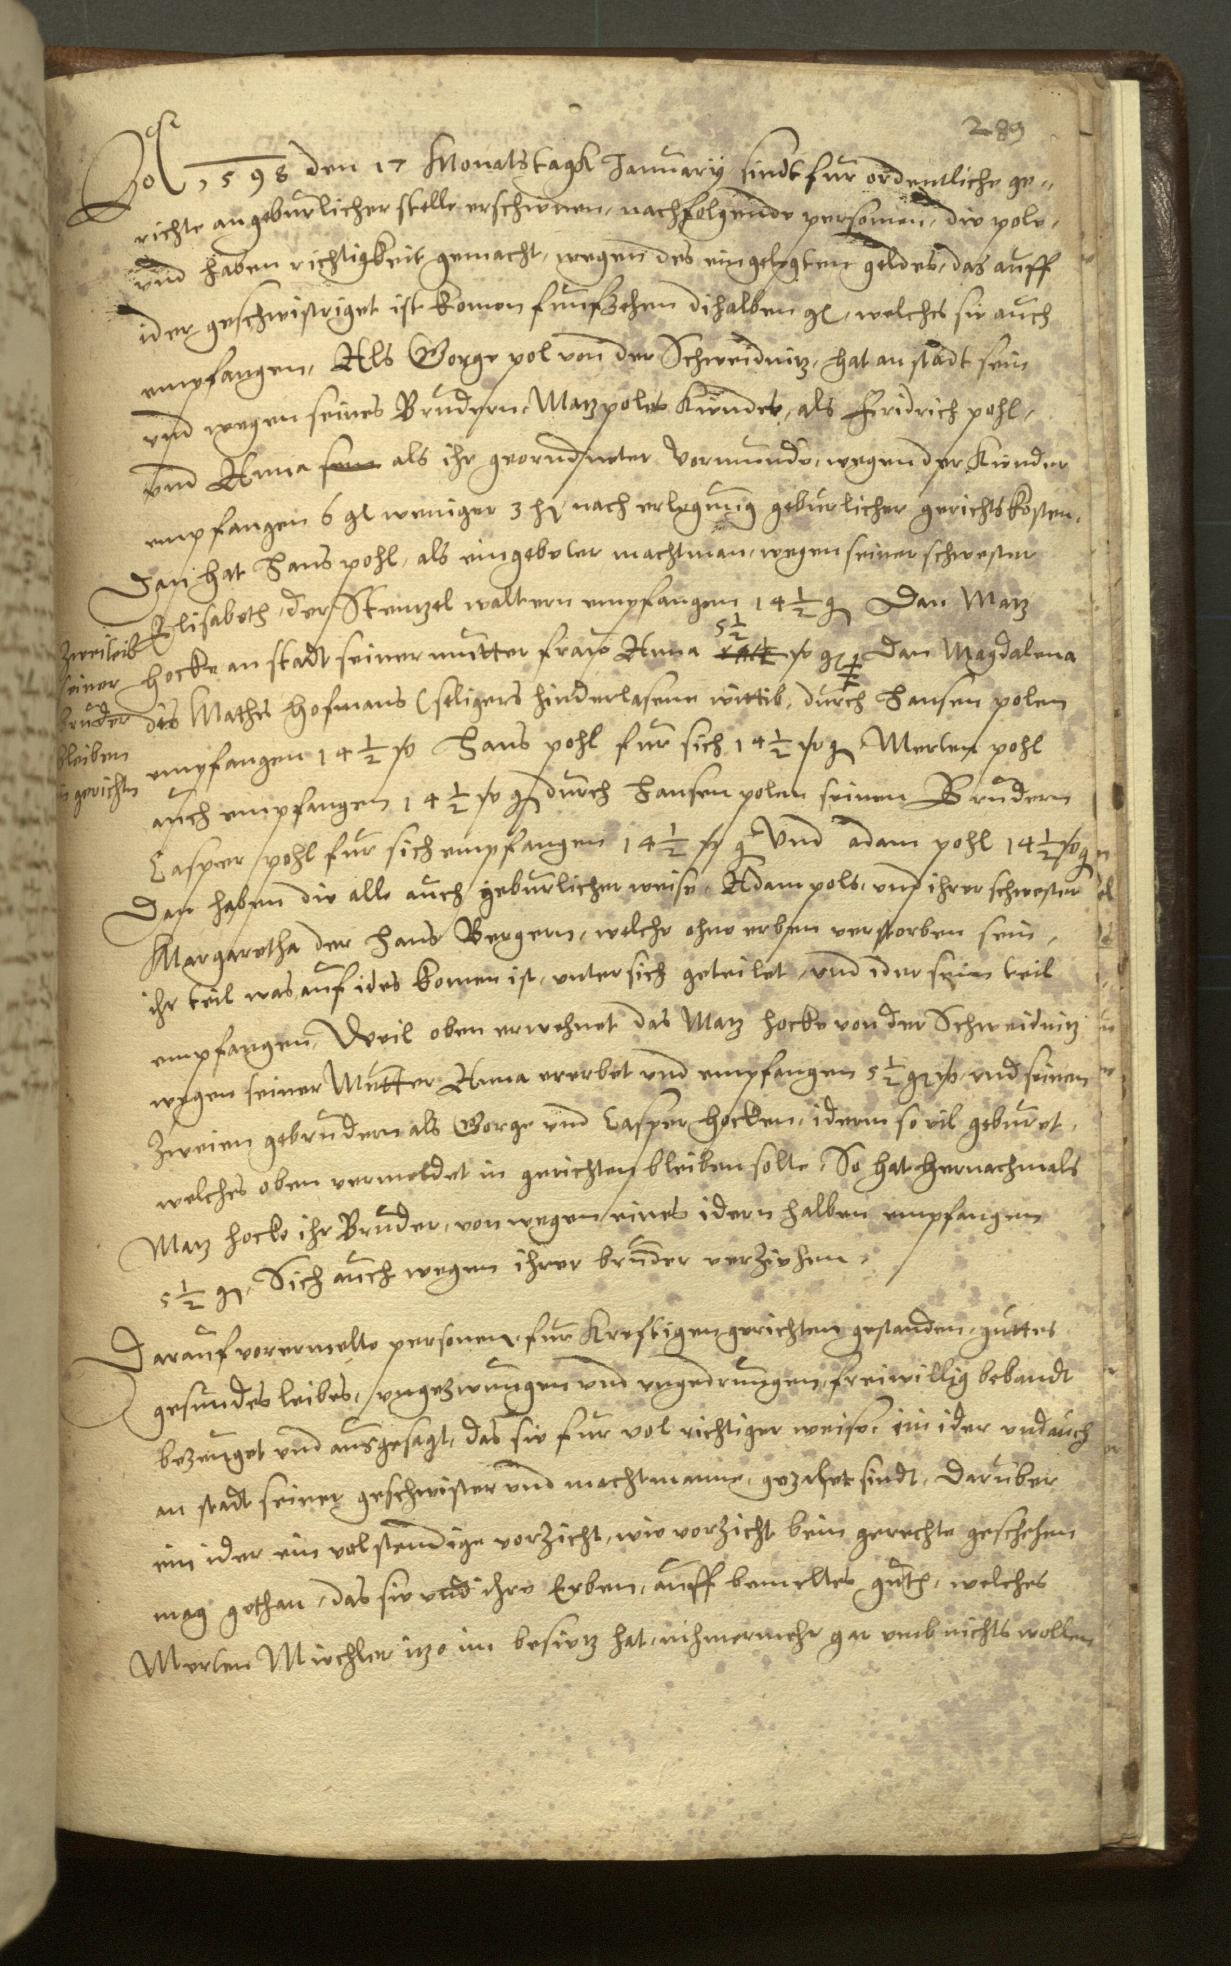 289
1598 den 17 Monatstagk January sindt fur ordentliche ge-
richte angeburlicher stelle erschinen, nachfolgende personen, die pole,
und haben richtigkeit gemacht, wegen des eingelegten geldes, das auff
ider geschwistriget ist komen funfzehen dihalben gl, welches sie auch
empfangen, Als Gorge pol von der Schweidnitz, hat an stadt sein
und wegen seines Brudern, Matz poles Kinder, als Fridrich pohl,
und Anna sein als ihr geordneter vormunde, wegen der Kinder
empfangen 6 gl weniger 3 hl nach erlegung geburlicher gerichtskosten,
Dan hat Hans pohl, als eingebeler machtman, wegen seiner schwester
Elisabeth, der Stentzel waltern empfangen 14 1/2 g Dan Matz
5 1/2
Hocke an stadt seiner mutter fraw Anna g Dan Magdalena
des Mathes Hofmans (seligers hinderlasene wittib, durch Hansen polen
zwei teil
seiner
bruder
bleiben
in gerichten
empfangen 14 1/2 Hans pohl fur sich 14 1/2 g Merten pohl
auch empfangen 14 1/2 g durch Hansen polen seinen Brudern
Casper pohl fur sich empfangen 14 1/2 g Und adam pohl 14 1/2 g
Dan haben die alle auch geburlicher weise, Adam pols, und ihrer schwester
Margaretha der Hans Bergern, welche ohne erben verstorben sein,
ihr teil was auf ides komen ist, unter sich geteilet, und ider sein teil
empfangen, Weil oben erwehnet das Matz Hocke von der Schweidnitz
wegen seiner Mutter Anna ererbet und empfangen 5 1/2 g und seinen
zweien gebrudern als Gorge und Casper Hocken, idern so vil geburet,
welches oben vermeldet in gerichten bleiben solte, So hat hernachmals
Matz Hocke ihr Bruder, von wegen eines idern halben empfangen
5 1/2 g, Sich auch wegen ihrer bruder verziehen,
Darauf vorermelte personen, fur Kreftigen gerichten gestanden, guttes
gesundes leibes, ungezwungen und ungedrungen, freiwillig bekandt
bezeuget und ausgesagt, das sie fur vol richtiger weise, ein ider und auch
an stadt seiner geschwister und machtmanne, gezalet sindt, Daruber
ein ider ein volstendige vorzicht, wie vorzicht beim gerechte geschehen
mag gethan, das sie und ihre Erben, auff bemeltes gutt, welches
Merten Michler itzo im besietz hat, nihmermehr gar umb nichts wollen